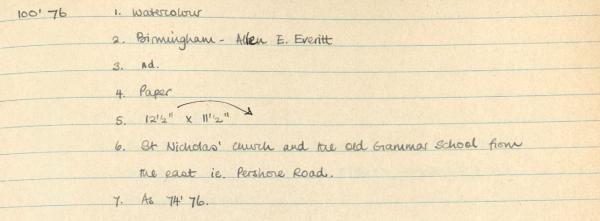 100' 76 1. Watercolour
2. Birmingham - Allen E. Everitt
3. nd.
4. Paper
5. 12½" x 11½"
6. St Nicholas' Church and the old Grammar School from
the east ie. Pershore Road.
7. As 74' 76.